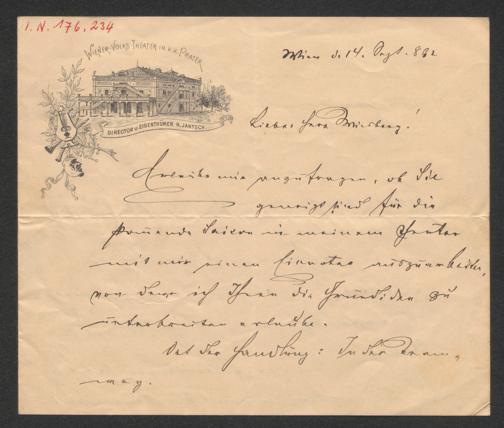 I. N. 176.234
WIENER-VOLKS THEATER IM K.K. PRATER
DIRECTOR U. EIGENTHÜMER H. JANTSCH.
Wien d. 14. Sept. 892
Lieber Herr Wiesberg!
Erlaube mir anzufragen, ob Sie
geneigt sind für die
kommende Saison in meinem Theater
mit mir einen auszuarbeiten,
von dem ich Ihnen die Grundidee zu
unterbreiten erlaube.
Ort der Handlung: In der